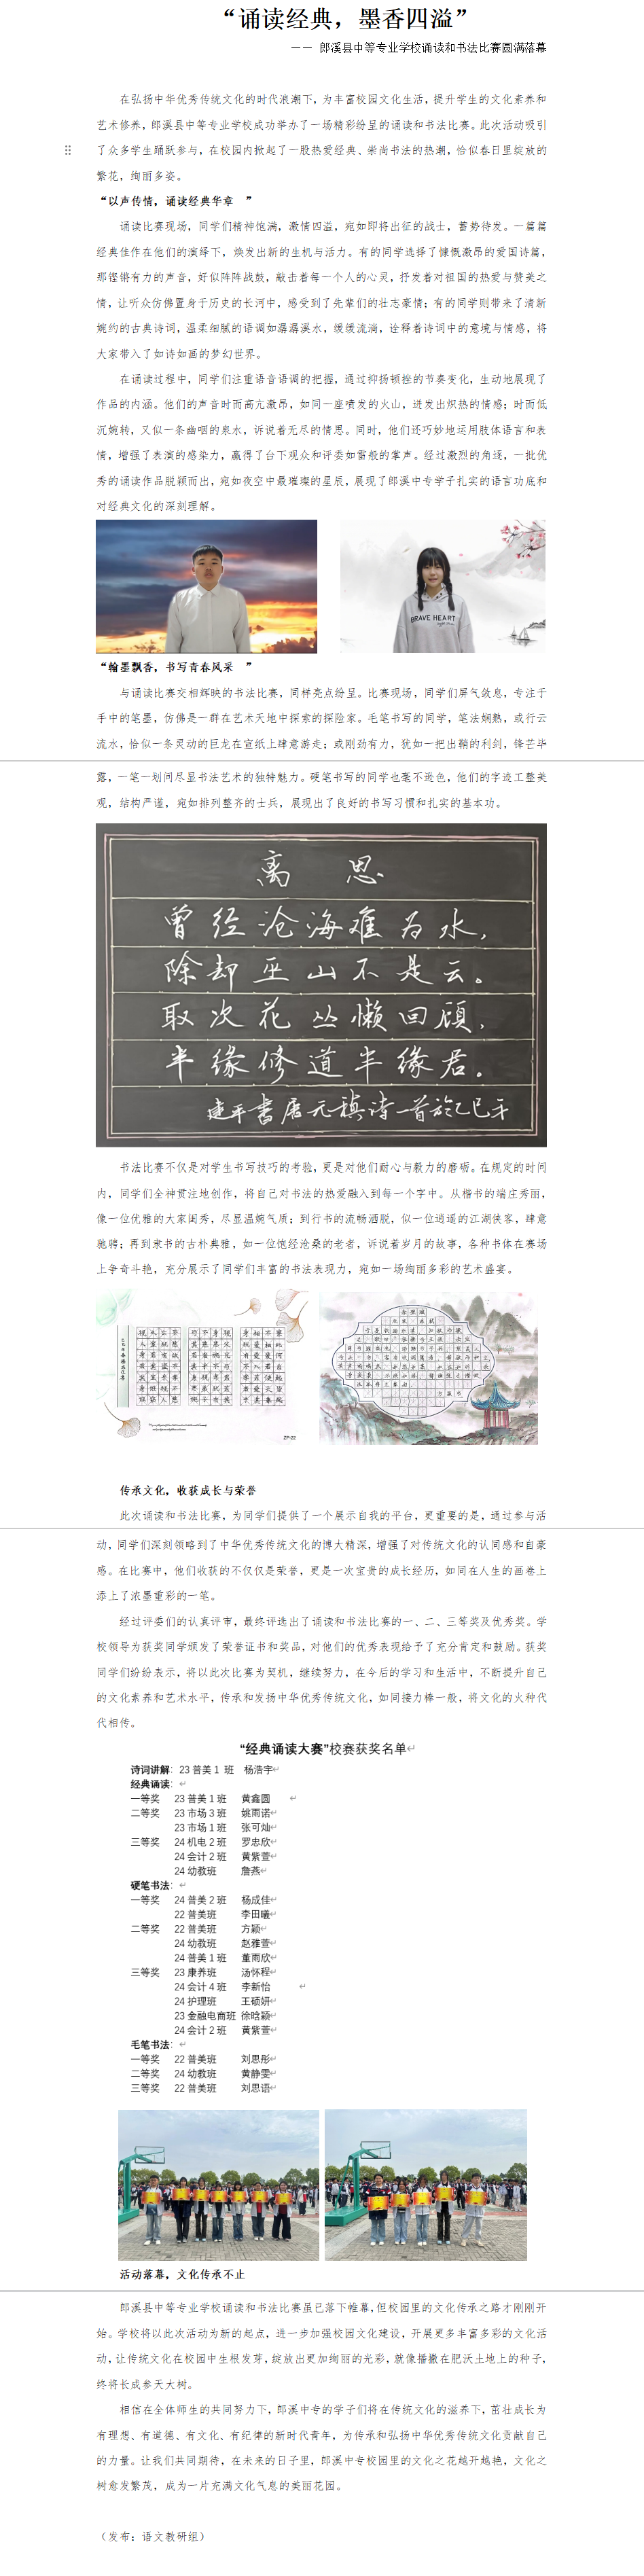 “诵读经典，墨香四溢”
—— 郎溪县中等专业学校诵读和书法比赛圆满落幕
在弘扬中华优秀传统文化的时代浪潮下，为丰富校园文化生活，提升学生的文化素养和
艺术修养，郎溪县中等专业学校成功举办了一场精彩纷呈的诵读和书法比赛。此次活动吸引
了众多学生踊跃参与，在校园内掀起了一股热爱经典、崇尚书法的热潮，恰似春日里绽放的
繁花，绚丽多姿。
“以声传情，诵读经典华章 ”
诵读比赛现场，同学们精神饱满，激情四溢，宛如即将出征的战士，蓄势待发。一篇篇
经典佳作在他们的演绎下，焕发出新的生机与活力。有的同学选择了慷慨激昂的爱国诗篇，
那铿锵有力的声音，好似阵阵战鼓，敲击着每一个人的心灵，抒发着对祖国的热爱与赞美之
情，让听众仿佛置身于历史的长河中，感受到了先辈们的壮志豪情；有的同学则带来了清新
婉约的古典诗词，温柔细腻的语调如潺潺溪水，缓缓流淌，诠释着诗词中的意境与情感，将
大家带入了如诗如画的梦幻世界。
在诵读过程中，同学们注重语音语调的把握，通过抑扬顿挫的节奏变化，生动地展现了
作品的内涵。他们的声音时而高亢激昂，如同一座喷发的火山，迸发出炽热的情感；时而低
沉婉转，又似一条幽咽的泉水，诉说着无尽的情思。同时，他们还巧妙地运用肢体语言和表
情，增强了表演的感染力，赢得了台下观众和评委如雷般的掌声。经过激烈的角逐，一批优
秀的诵读作品脱颖而出，宛如夜空中最璀璨的星辰，展现了郎溪中专学子扎实的语言功底和
对经典文化的深刻理解。
BRAVE HEART
“翰墨飘香，书写青春风采 ”
与诵读比赛交相辉映的书法比赛，同样亮点纷呈。比赛现场，同学们屏气敛息，专注于
手中的笔墨，仿佛是一群在艺术天地中探索的探险家。毛笔书写的同学，笔法娴熟，或行云
流水，恰似一条灵动的巨龙在宣纸上肆意游走；或刚劲有力，犹如一把出鞘的利剑，锋芒毕
露，一笔一划间尽显书法艺术的独特魅力。硬笔书写的同学也毫不逊色，他们的字迹工整美
观，结构严谨，宛如排列整齐的士兵，展现出了良好的书写习惯和扎实的基本功。
离思
曾经沧海难为水，
除却巫山不是云。
取次花丛懒回顾，
半缘修道半缘君。
建平书屠元稹诗一首于乙巳年
书法比赛不仅是对学生书写技巧的考验，更是对他们耐心与毅力的磨砺。在规定的时间
内，同学们全神贯注地创作，将自己对书法的热爱融入到每一个字中。从楷书的端庄秀丽，
像一位优雅的大家闺秀，尽显温婉气质；到行书的流畅洒脱，似一位逍遥的江湖侠客，肆意
驰骋；再到隶书的古朴典雅，如一位饱经沧桑的老者，诉说着岁月的故事，各种书体在赛场
上争奇斗艳，充分展示了同学们丰富的书法表现力，宛如一场绚丽多彩的艺术盛宴。
ZP-22
传承文化，收获成长与荣誉
此次诵读和书法比赛，为同学们提供了一个展示自我的平台，更重要的是，通过参与活
动，同学们深刻领略到了中华优秀传统文化的博大精深，增强了对传统文化的认同感和自豪
感。在比赛中，他们收获的不仅仅是荣誉，更是一次宝贵的成长经历，如同在人生的画卷上
添上了浓墨重彩的一笔。
经过评委们的认真评审，最终评选出了诵读和书法比赛的一、二、三等奖及优秀奖。学
校领导为获奖同学颁发了荣誉证书和奖品，对他们的优秀表现给予了充分肯定和鼓励。获奖
同学们纷纷表示，将以此次比赛为契机，继续努力，在今后的学习和生活中，不断提升自己
的文化素养和艺术水平，传承和发扬中华优秀传统文化，如同接力棒一般，将文化的火种代
代相传。
“经典诵读大赛”校赛获奖名单
诗词讲解：23 普美 1 班 杨浩宇
经典诵读：
一等奖 23 普美 1 班 黄鑫圆
二等奖 23 市场 3 班 姚雨诺
23 市场 1 班 张可灿
三等奖 24 机电 2 班 罗忠欣
24 会计 2 班 黄紫萱
24 幼教班 詹燕
硬笔书法：
一等奖 24 普美 2 班 杨成佳
22 普美班 李田曦
二等奖 22 普美班 方颖
24 幼教班 赵雅萱
24 普美 1 班 董雨欣
三等奖 23 康养班 汤怀程
24 会计 4 班 李新怡
24 护理班 王硕妍
23 金融电商班 徐晗颖
24 会计 2 班 黄紫萱
毛笔书法：
一等奖 22 普美班 刘思彤
二等奖 24 幼教班 黄静雯
三等奖 22 普美班 刘思语
活动落幕，文化传承不止
郎溪县中等专业学校诵读和书法比赛虽已落下帷幕，但校园里的文化传承之路才刚刚开
始。学校将以此次活动为新的起点，进一步加强校园文化建设，开展更多丰富多彩的文化活
动，让传统文化在校园中生根发芽，绽放出更加绚丽的光彩，就像播撒在肥沃土地上的种子，
终将长成参天大树。
相信在全体师生的共同努力下，郎溪中专的学子们将在传统文化的滋养下，茁壮成长为
有理想、有道德、有文化、有纪律的新时代青年，为传承和弘扬中华优秀传统文化贡献自己
的力量。让我们共同期待，在未来的日子里，郎溪中专校园里的文化之花越开越艳，文化之
树愈发繁茂，成为一片充满文化气息的美丽花园。
（发布：语文教研组）